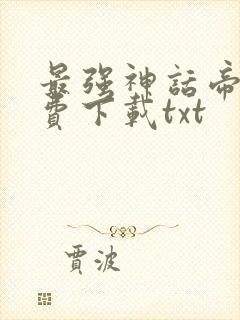 最強神話帝
費下載txt
賈波